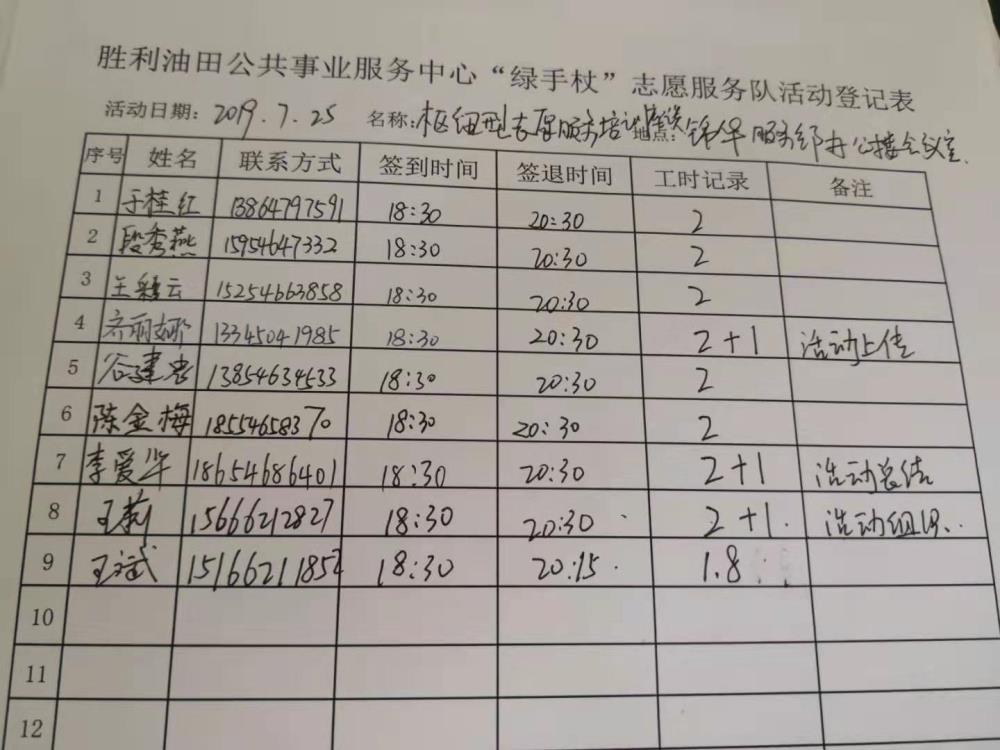 胜利油田公共事业服务中心“绿手杖”志愿服务队活动登记表
活动日期：2019.7.25 名称：枢纽型志愿服务培训 地点：锦华服务部办公楼会议室.
序号 姓名 联系方式 签到时间 签退时间 工时记录 备注
1 于桂红 13864797591 18:30 20:30 2
2 段秀燕 15954647332 18:30 20:30 2
3 王彩云 15254663858 18:30 20:30 2
4 齐丽娜 13345041985 18:30 20:30 2+1 活动上传
5 谷建忠 13854634533 18:30 20:30 2
6 陈金梅 18554658370 18:30 20:30 2
7 李爱华 18654686401 18:30 20:30 2+1 活动总结
8 王莉 15666212827 18:30 20:30 2+1. 活动组织.
9 王斌 15166211852 18:30 20:15. 1.8
10
11
12